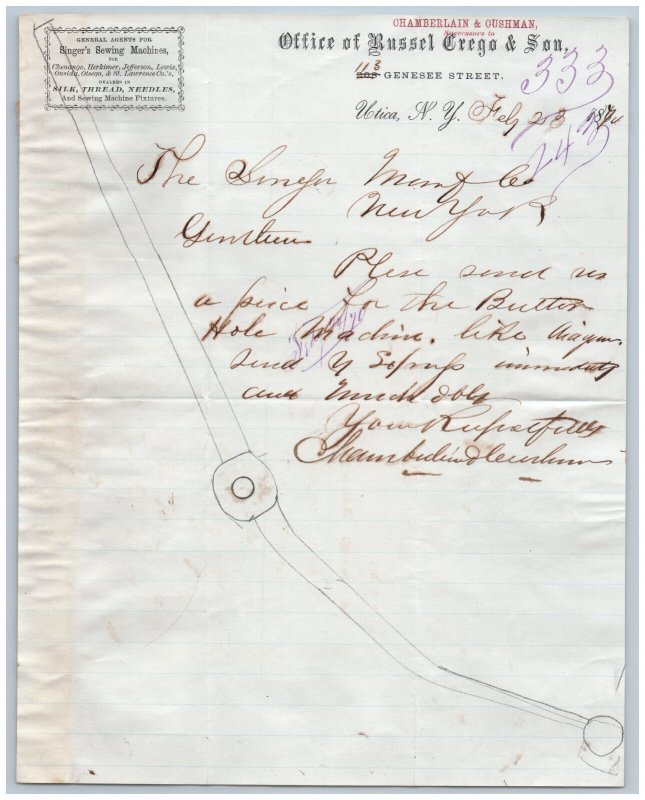 GENERAL AGENTS FOR
Singer's Sewing Machines,
FOR
Chenango, Herkimer, Jefferson, Lewis,
Oneida, Otsego, & St. Lawrence Co.'s,
DEALERS IN
SILK, THREAD, NEEDLES,
And Sewing Machine Fixtures.
CHAMBERLAIN & CUSHMAN,
Successors to
Office of Russel Crego & Son,
113
208 GENESEE STREET,
333
Utica, N. Y. Feb 23 1870
The Singer Manf Co
New York
Gentlemen
Plese send us
a peice for the Button
Hole Machine. like diagram
Send
and much oblg
Your Respectfully
Chamberlin & Cushman